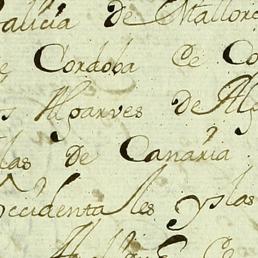 alicia de Mallorc
Cordoba de Co
s Algarves de Alg
las de Canaria
ccidentales yslas